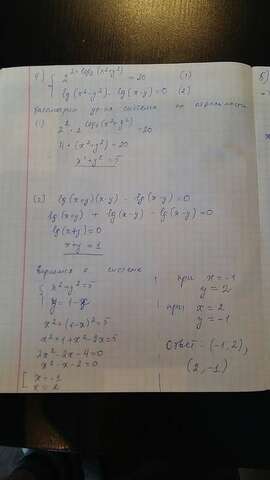 9) { 2^{2+log₂(x²+y²)} = 20 (1)
lg(x²-y²) - lg(x-y) = 0 (2)
ур-ия системы по отдельности
(1) 2² · 2^{log₂(x²+y²)} = 20
4 · (x²+y²) = 20
x²+y² = 5
(2) lg(x+y)(x-y) - lg(x-y) = 0
lg(x+y) + lg(x-y) - lg(x-y) = 0
lg(x+y) = 0
x+y = 1
Вернемся к системе
{ x²+y² = 5
y = 1-x
x²+(1-x)² = 5
x²+1+x²-2x = 5
2x²-2x-4 = 0
x²-x-2 = 0
[ x = -1
x = 2
при x = -1
y = 2
при x = 2
y = -1
Ответ - (-1, 2),
(2, -1)